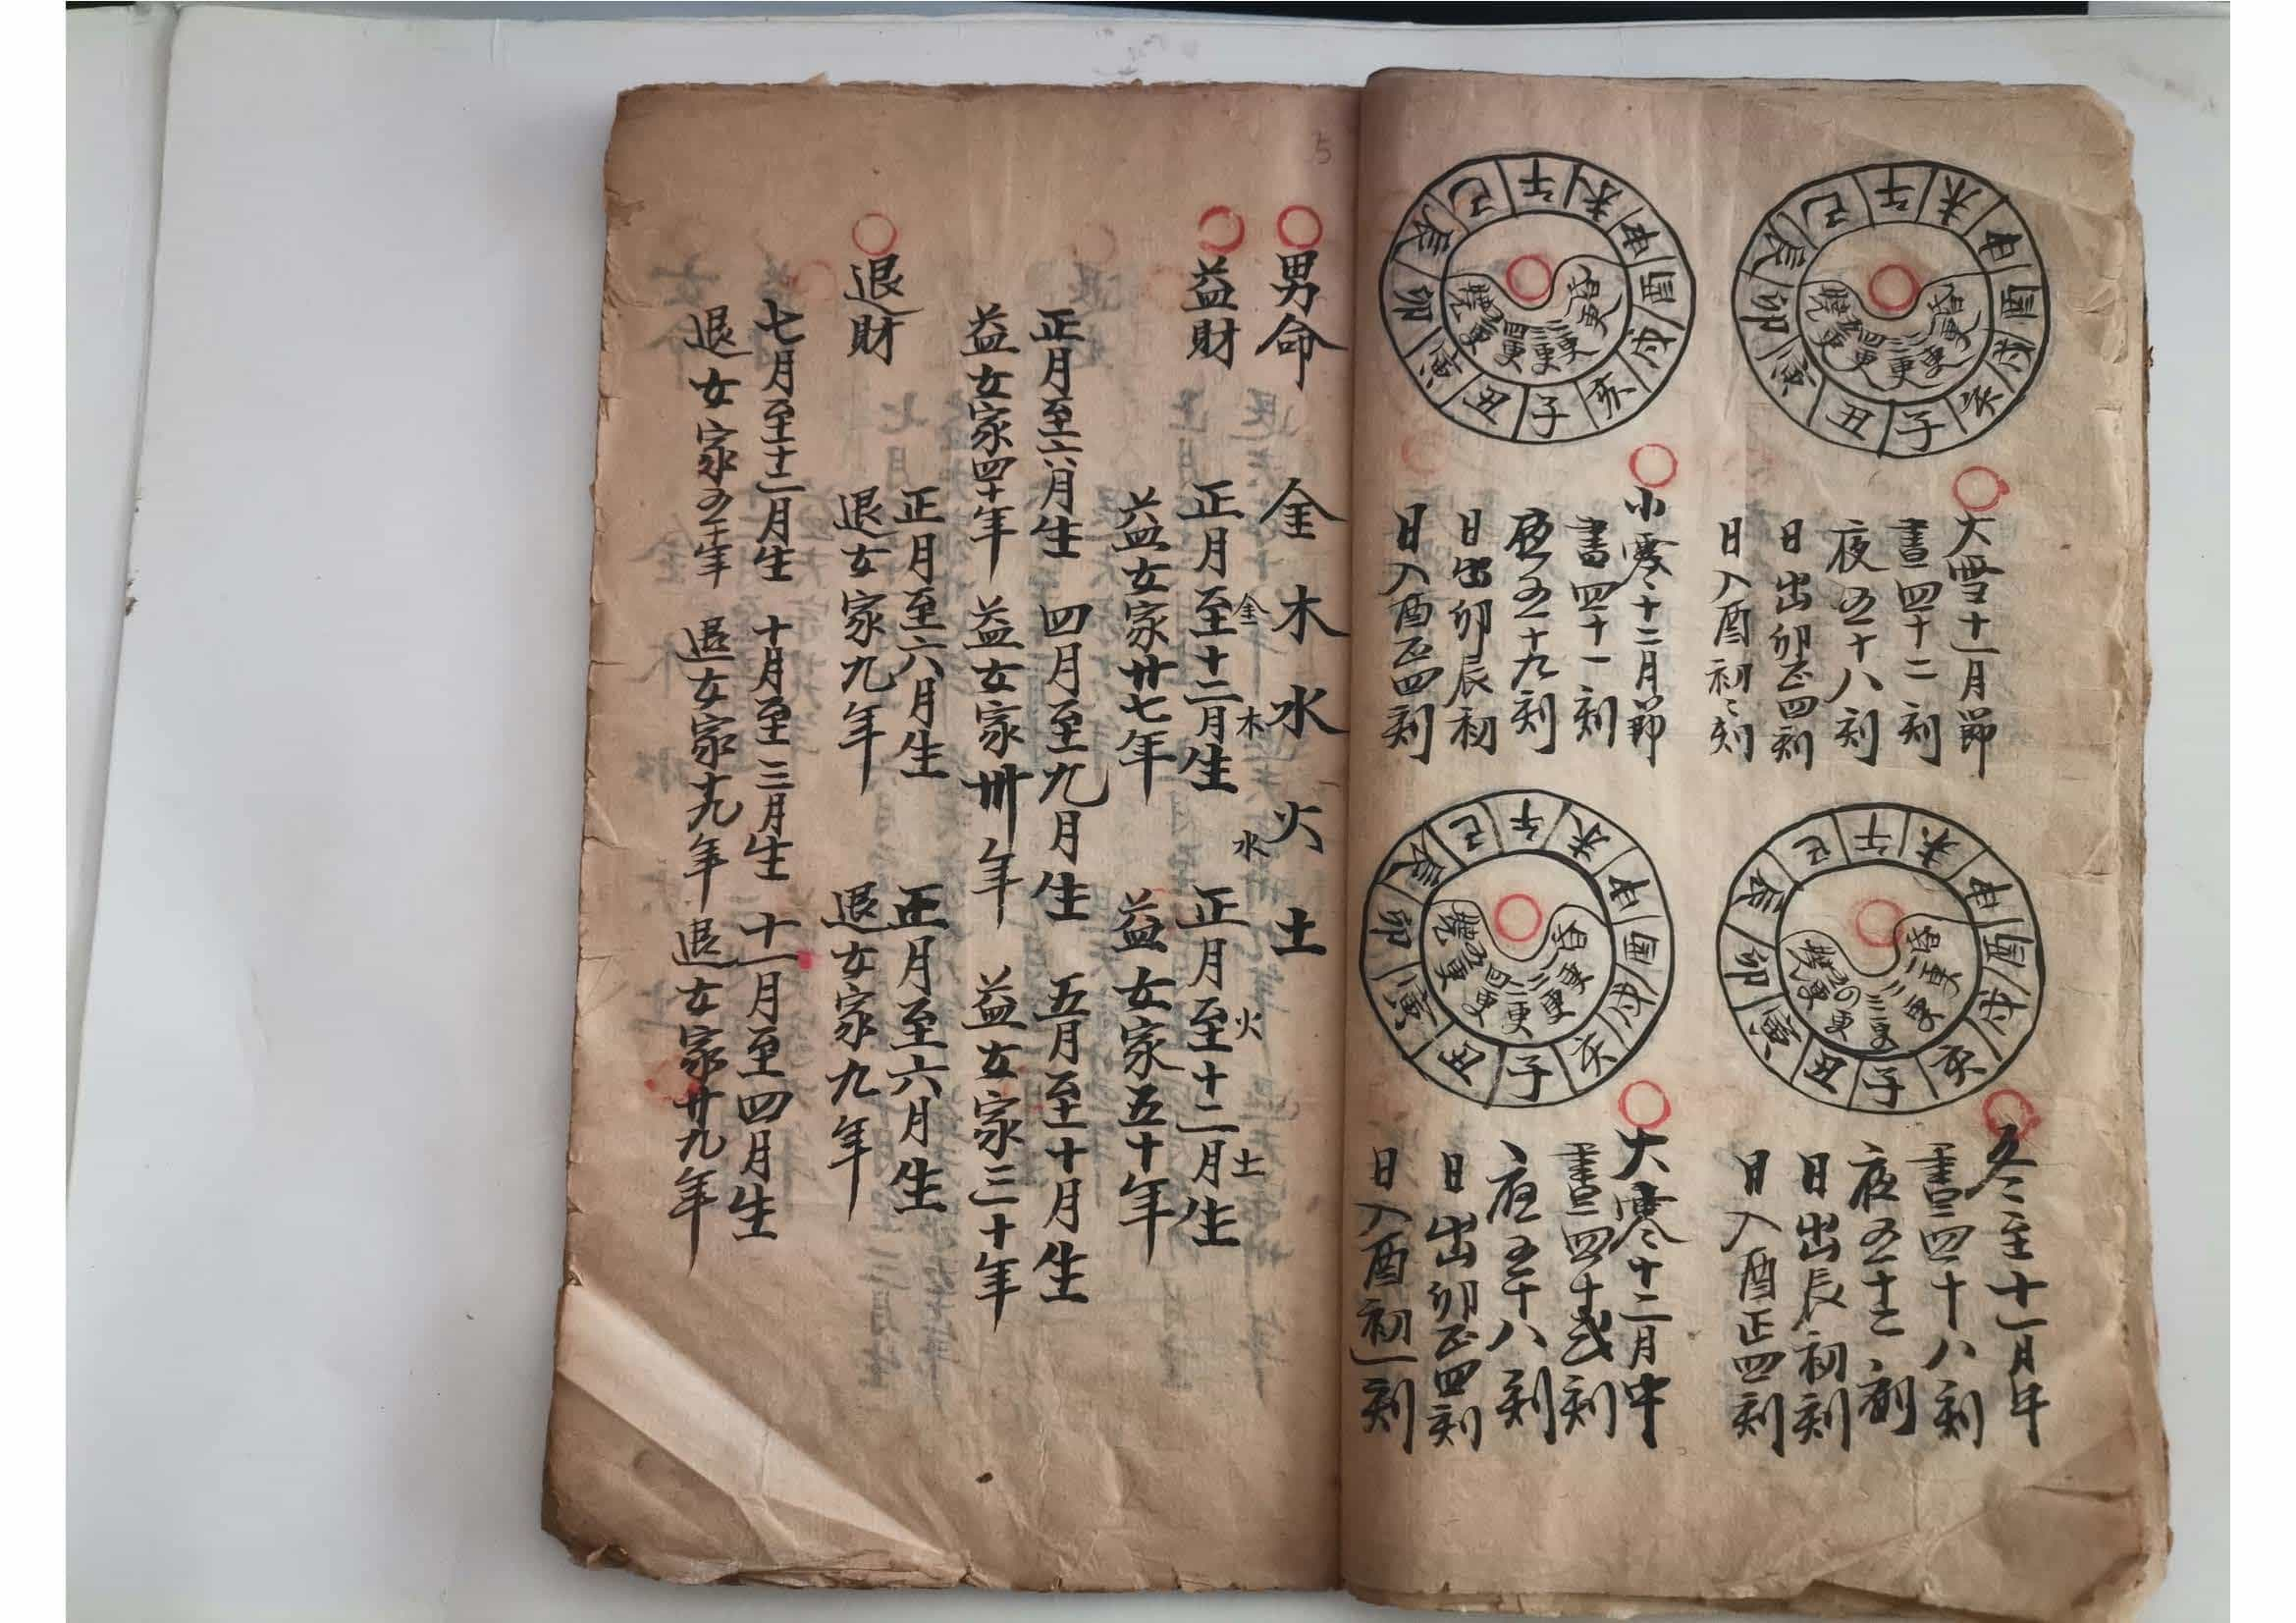 午未申酉戌亥子丑寅卯辰巳
昏 一更 二更 三更 四更 五更 曉
大雪十一月節
晝四十二刻
夜五十八刻
日出卯正四刻
日入酉初〻刻
午未申酉戌亥子丑寅卯辰巳
昏 一更 二更 三更 四更 五更 曉
小寒十二月節
晝四十一刻
夜五十九刻
日出卯辰初
日入酉正四刻
午未申酉戌亥子丑寅卯辰巳
昏 一更 二更 三更 四更 五更 曉
冬至十一月中
晝四十八刻
夜五十二刻
日出辰初刻
日入酉正四刻
午未申酉戌亥子丑寅卯辰巳
昏 一更 二更 三更 四更 五更 曉
大寒十二月中
晝四十弍刻
夜五十八刻
日出卯正四刻
日入酉初一刻
5
男命 金木水火土
金 木 水 火 土
益財 正月至十二月生 正月至十二月生
益女家廿七年 益女家五十年
正月至六月生 四月至九月生 五月至十月生
益女家四十年 益女家卅年 益女家三十年
退財 正月至六月生 正月至六月生
退女家九年 退女家九年
七月至十二月生 十月至三月生 十一月至四月生
退女家五十年 退女家十九年 退女家廿九年